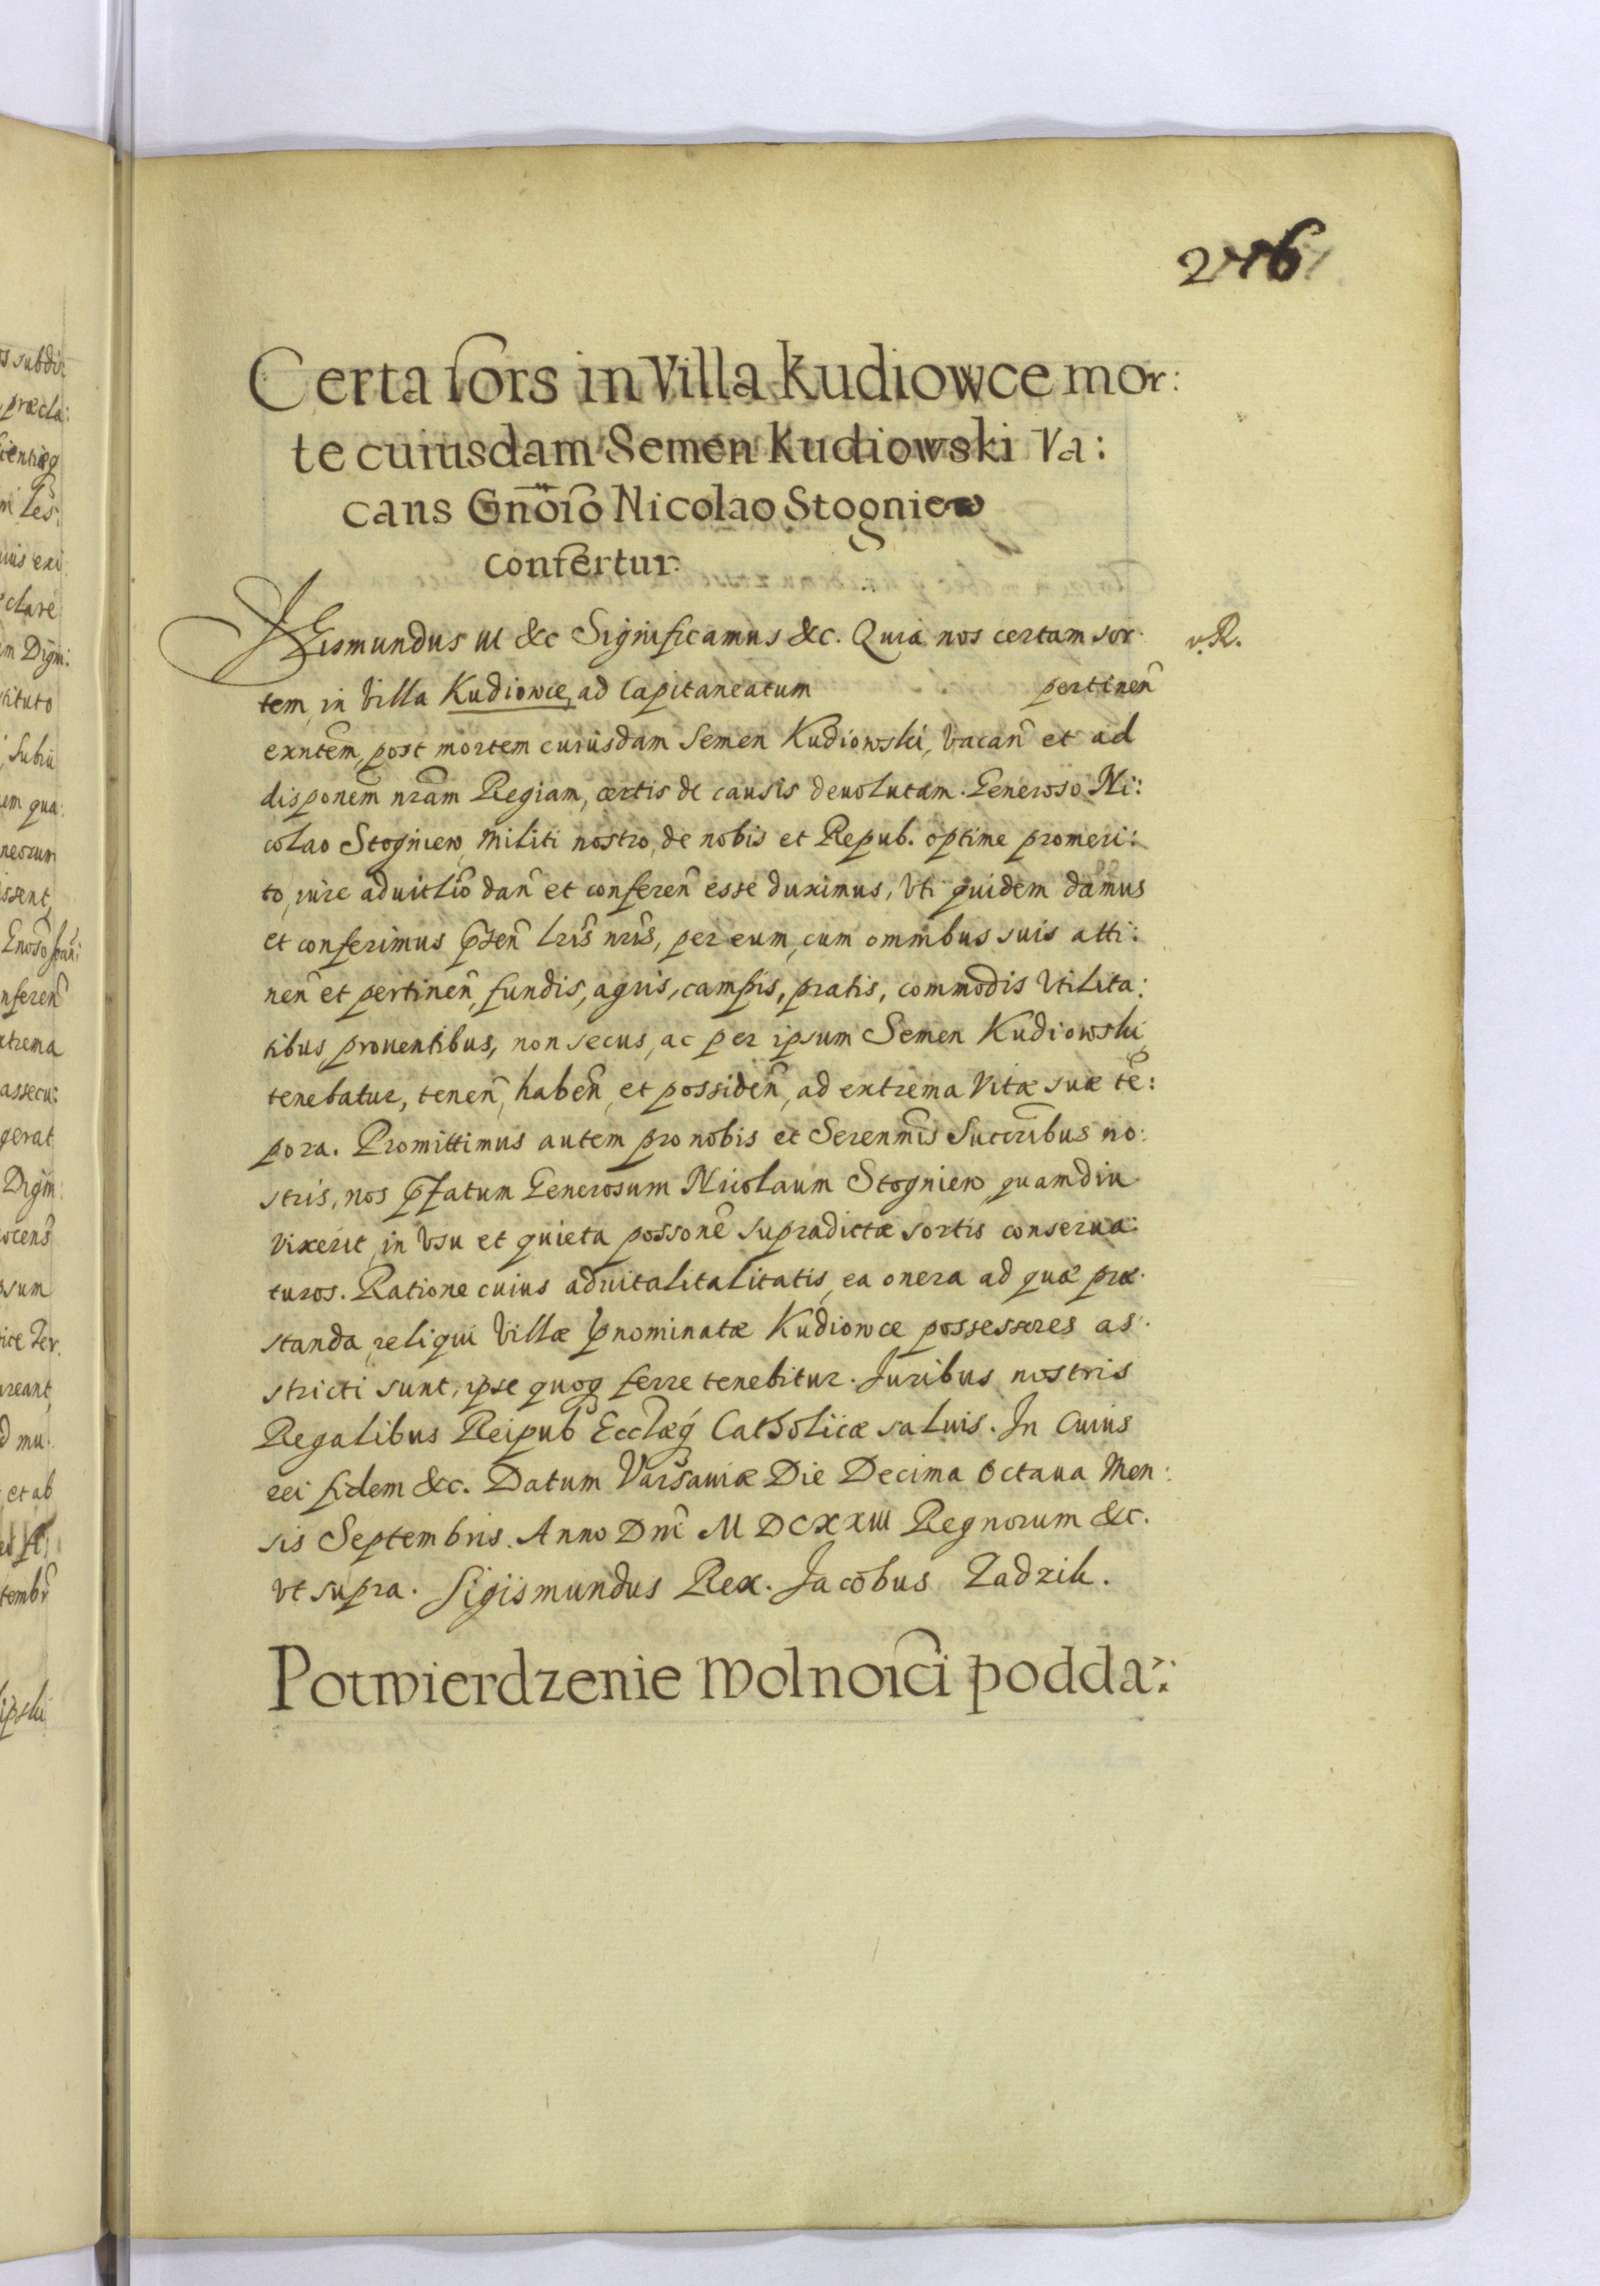 Certa sors in Villa Kudiowce mor:
te cuiusdam Semen Kudiowski Va:
cans Gnoso Nicolao Stogniew
confertur.
Sigismundus III &c Significamus &c. Quia nos certam sor
v. R.
tem, in Villa Kudiowce, ad Capitaneatum pertinen̄
exntem, post mortem cuiusdam Semen Kudiowski, vacan̄ et ad
disponem nram Regiam, certis de causis deuolutam. Generoso Ni:
colao Stogniew, Militi nostro, de nobis et Repub. optime promeri:
to, iure aduitlio dan̄ et conferen̄ esse duximus, Vti quidem damus
et conferimus pñten̄ lris nris, per eum, cum omnibus suis atti:
nen̄ et pertinen̄, fundis, agris, campis, pratis, commodis Vtilita:
tibus, prouentibus, non secus, ac per ipsum Semen Kudiowski
tenebatur, tenen̄, haben̄, et possiden̄, ad extrema Vitæ suæ tē:
pora. Promittimus autem pro nobis et Serenmis Succribus no:
stris, nos pfatum Generosum Nicolaum Stogniew, quamdiu
vixerit, in Vsu et quieta possone supradictæ sortis conserua:
turos. Ratione cuius aduitalitalitatis, ea onera ad quæ præ:
standa, reliqui Villæ pnominatæ Kudiowce possessores as:
stricti sunt, ipse quoq ferre tenebitur. Juribus nostris
Regalibus Reipub Ecclæq Catholicæ saluis. In Cuius
rei fidem &c. Datum Varsauiæ Die Decima Octaua Men:
sis Septembris. Anno Dni M DCXXIII Regnorum &c.
vt supra. Sigismundus Rex. Jacobus Zadzik.
Potwierdzenie Wolności podda: